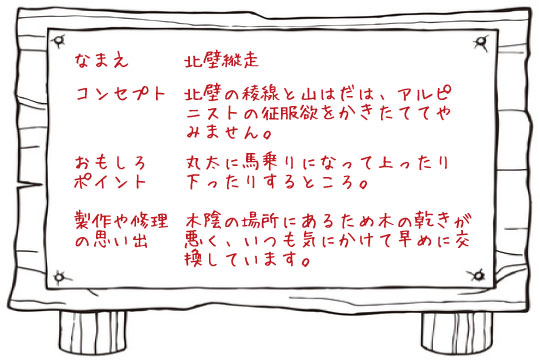 なまえ 北壁縦走
コンセプト 北壁の稜線と山はだは、アルピ
ニストの征服欲をかきたててや
みません。
おもしろ 丸太に馬乗りになって上ったり
ポイント 下ったりするところ。
製作や修理 木陰の場所にあるため木の乾きが
の思い出 悪く、いつも気にかけて早めに交
換しています。